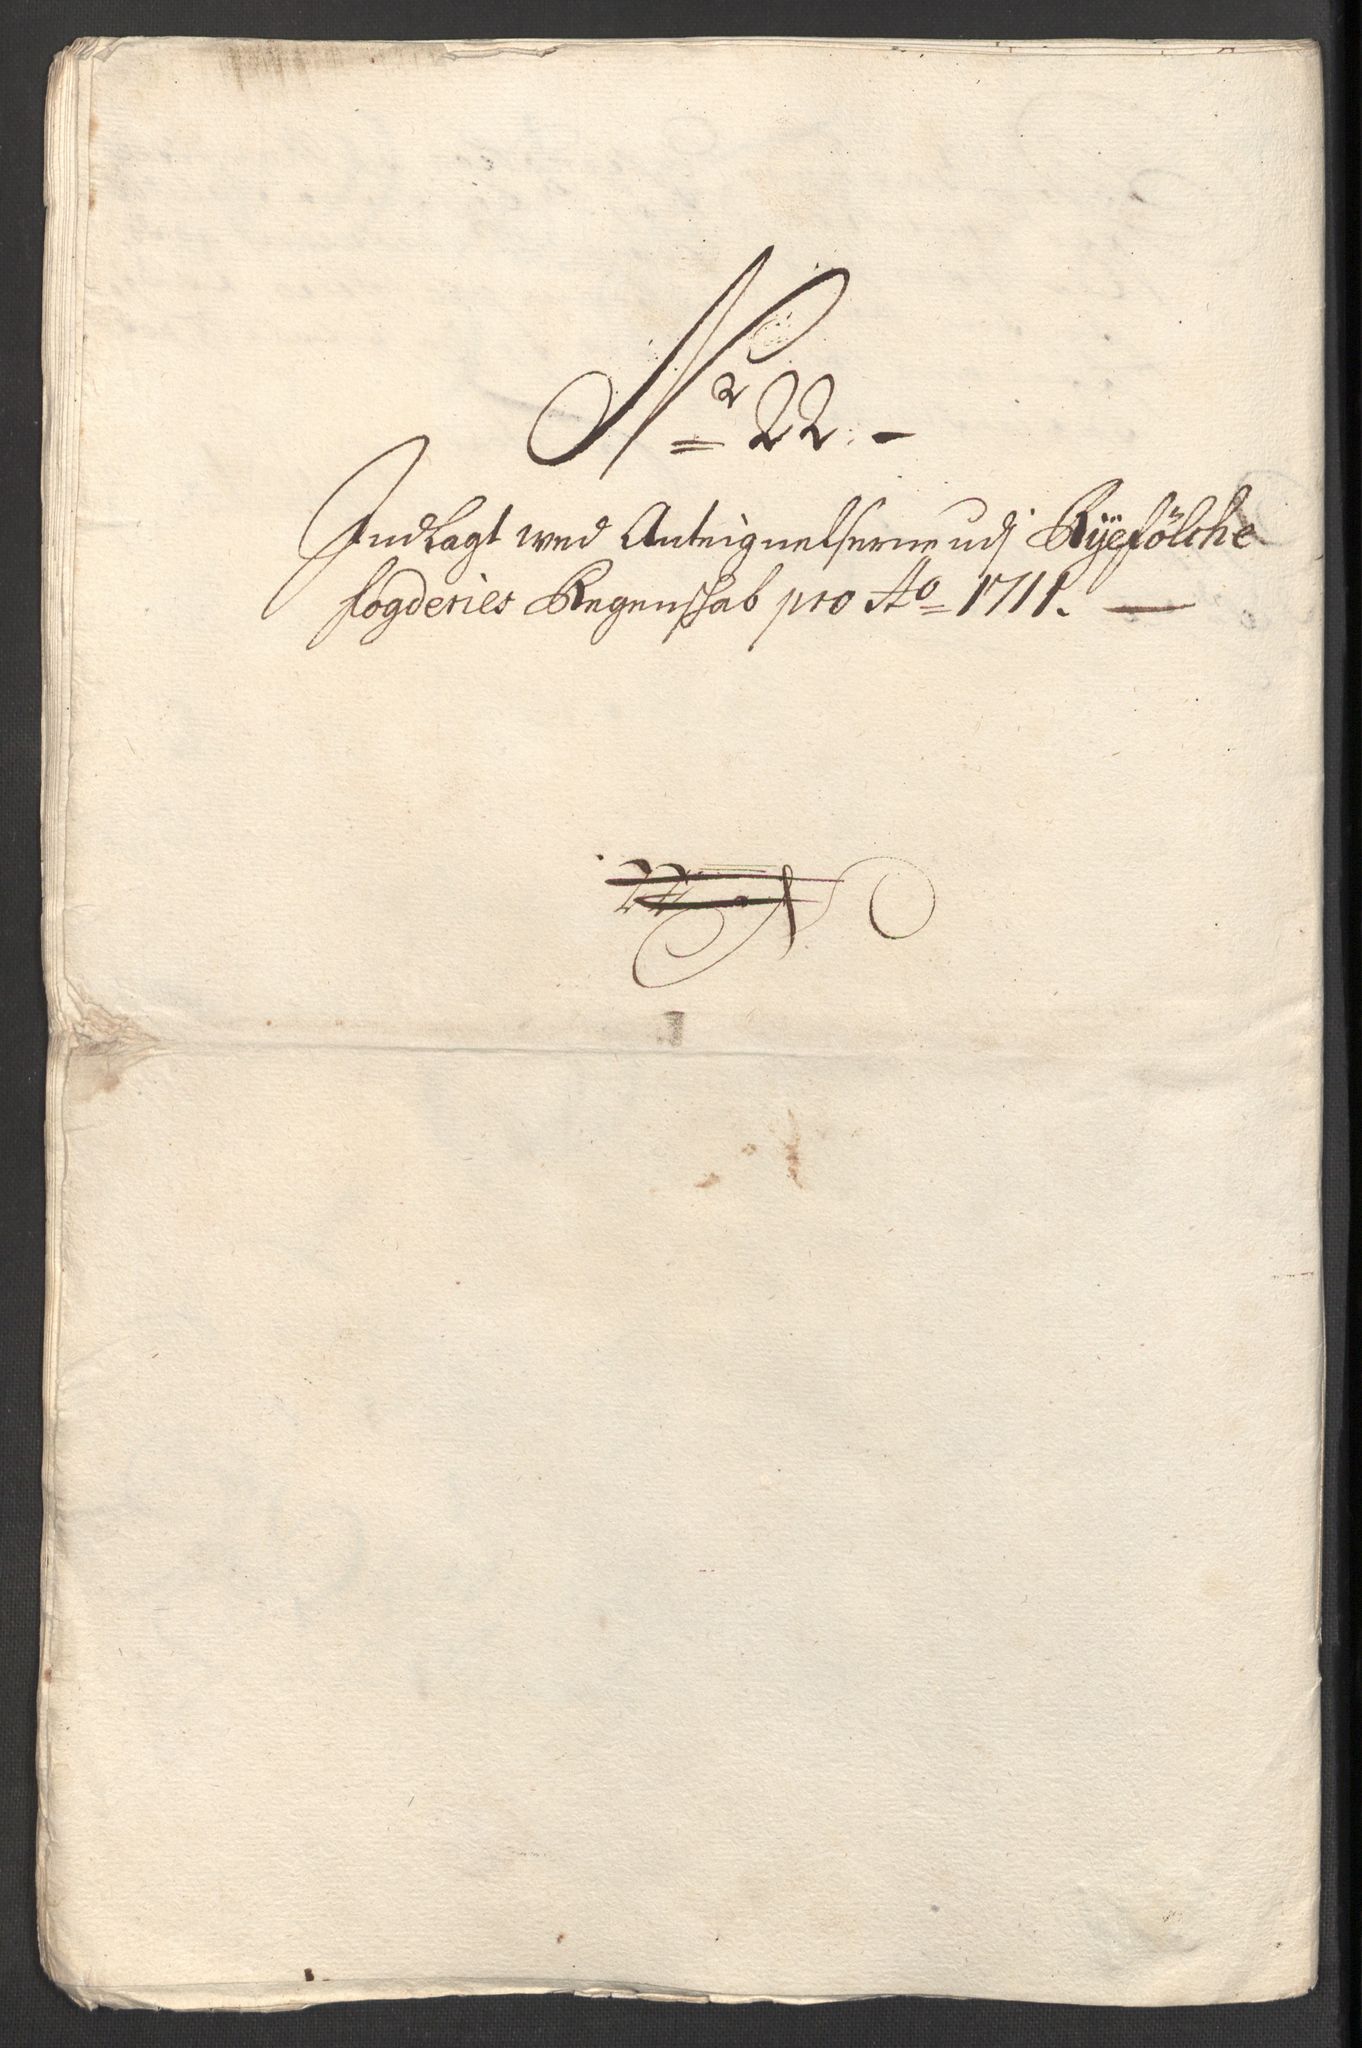 No 22. -
Indlagt wed Anteignelserne udj Ryefölche
fogderies Regenskab pro Ao 1711.